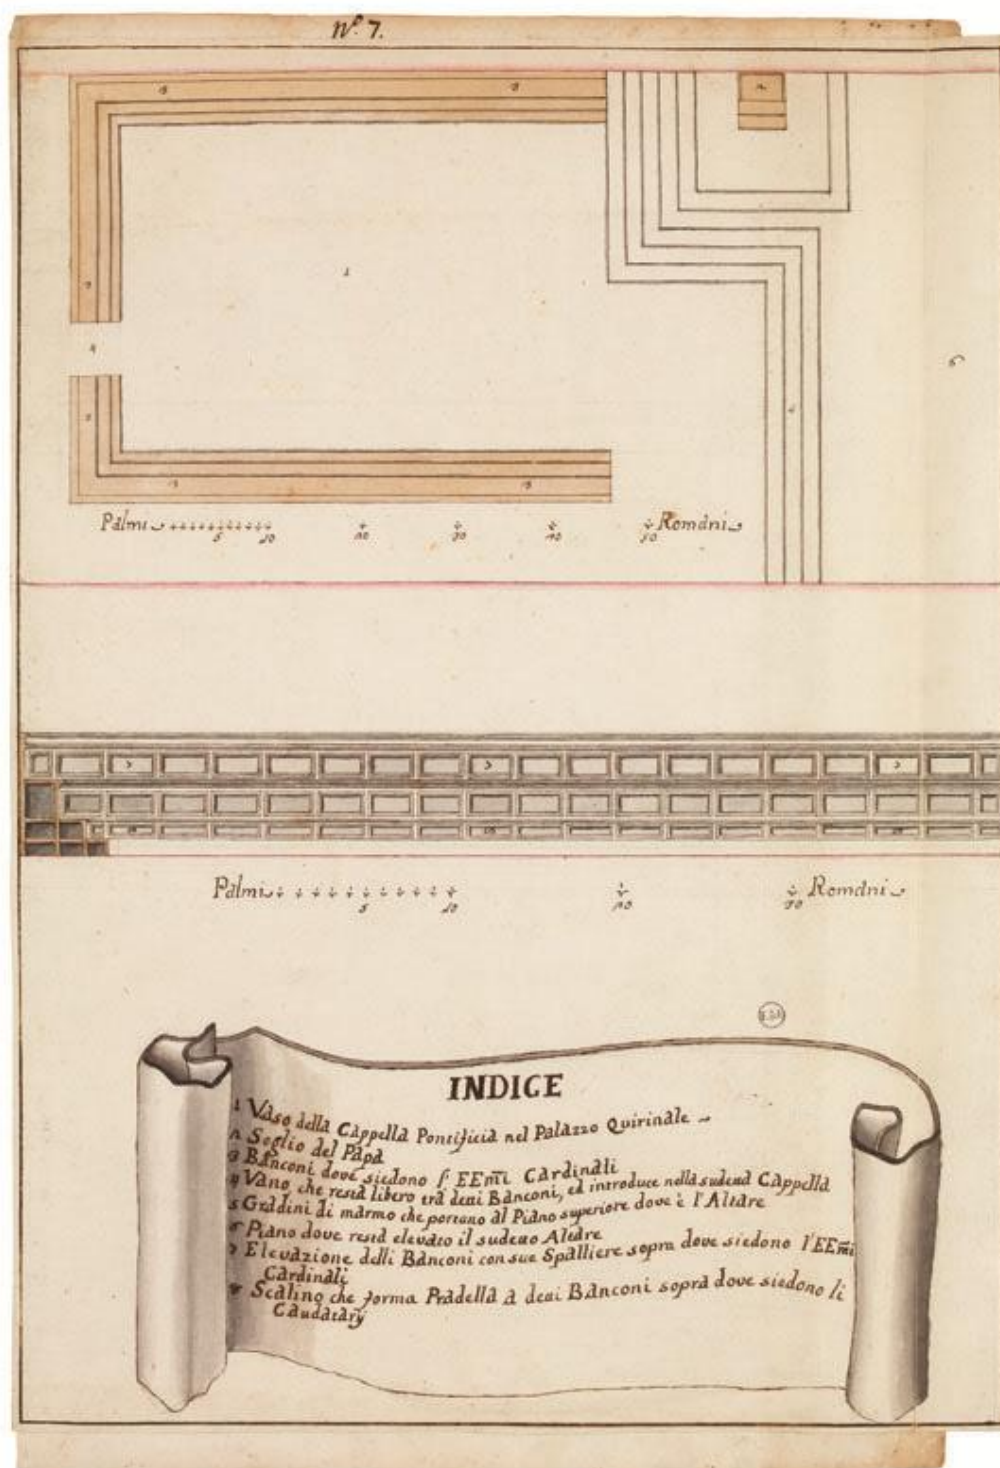 Nº. 7.
3 3
2
3
1
4
6
5
3
3 3
Palmi 5 10 20 30 40 50 Romani
7 7 7
8 8 8
Palmi 5 10 20 30 Romani
INDICE
1 Vaso della Cappella Pontificia nel Palazzo Quirinale
2 Soglio del Papa
3 Banconi dove siedono l' EEm̃i Cardinali
4 Vano che resta libero trà detti Banconi, ed introduce nella sudetta Cappella
5 Gradini di marmo che portano al Piano superiore dove è l'Altare
6 Piano dove resta elevato il sudetto Altare
7 Elevazione delli Banconi con sue Spalliere sopra dove siedono l'EEm̃i
Cardinali
8 Scalino che forma Pradella a detti Banconi sopra dove siedono li
Caudatarÿ